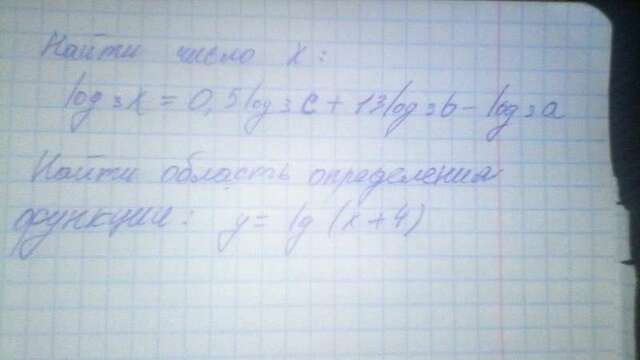 Найти число x:
log₃x = 0,5log₃c + 13log₃b - log₃a
Найти область определения
функции: y = lg (x+4)